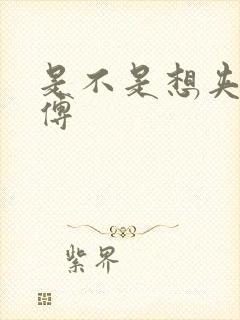 是不是想失
傅
紫界